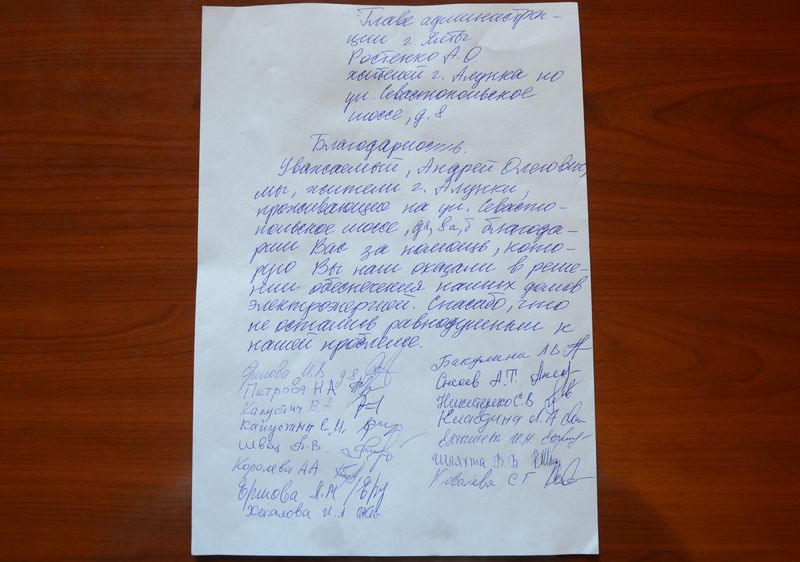 Главе администра-
ции г. Ялты
Ростенко А.О
жителей г. Алупка по
ул. Севастопольское
шоссе, д. 8
Благодарность.
Уважаемый, Андрей Олегович,
мы, жители г. Алупки,
проживающие на ул. Севасто-
польское шоссе, д8, 8а, б благода-
рим Вас за помощь, кото-
рую Вы нам оказали в реше-
нии обеспечения наших домов
электроэнергией. Спасибо, что
не остались равнодушным к
нашей проблеме.
Ершова И.В д 8
Петрова НА
Капустин В А
Капустина С.И.
Швец В.
Королева АА
Ершова Л.М.
Хекалова И.А
Бакулина Л В
Снаев А.Т.
Никитенко С.В
Клиндина Л.А
И.Н
Шляхта В.В
Ковалева С Г